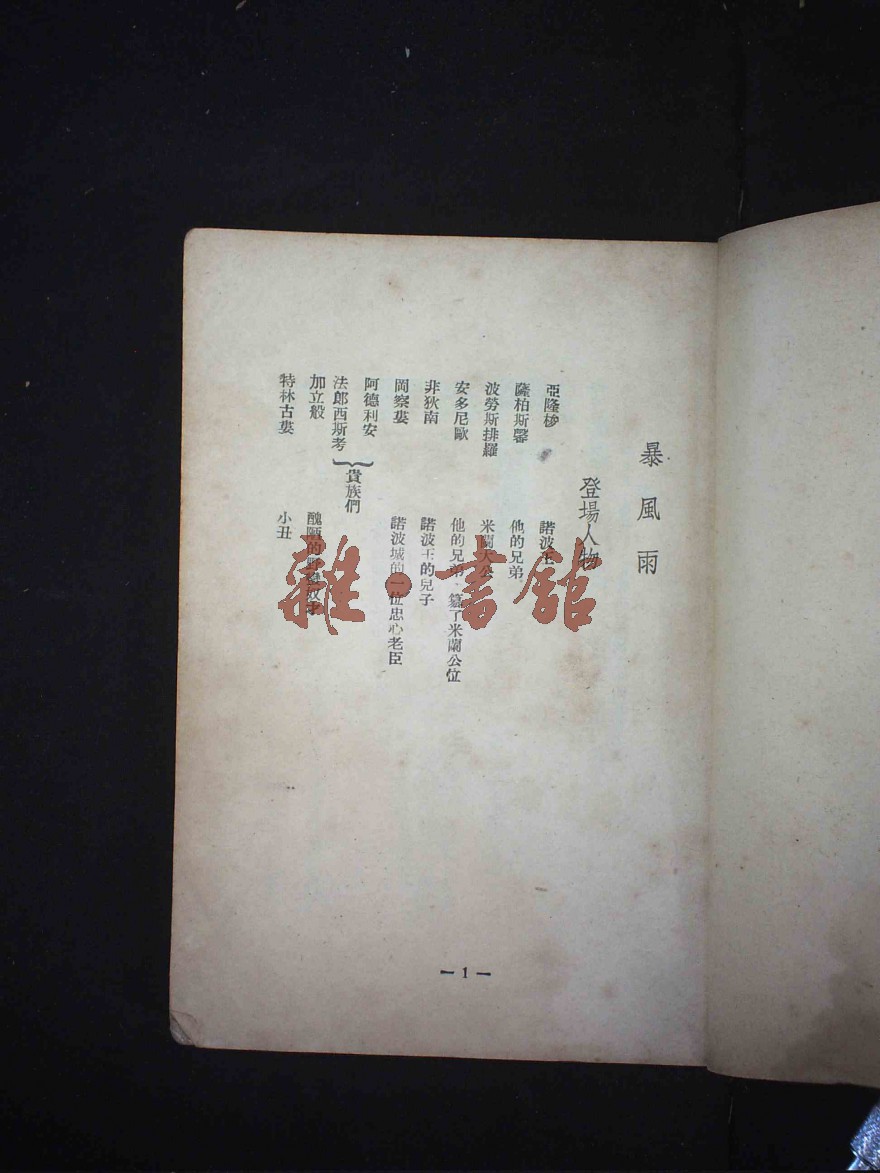 暴風雨
登場人物
亞隆梭 諾波王
薩柏斯馨 他的兄弟
波勞斯排羅 米蘭大公
安多尼歐 他的兄弟，篡了米蘭公位
非狄南 諾波王的兒子
岡察婁 諾波城的一位忠心老臣
阿德利安
法郎西斯考
貴族們
加立般 醜陋的野蠻奴才
特林古婁 小丑
— 1 —
雜·書館